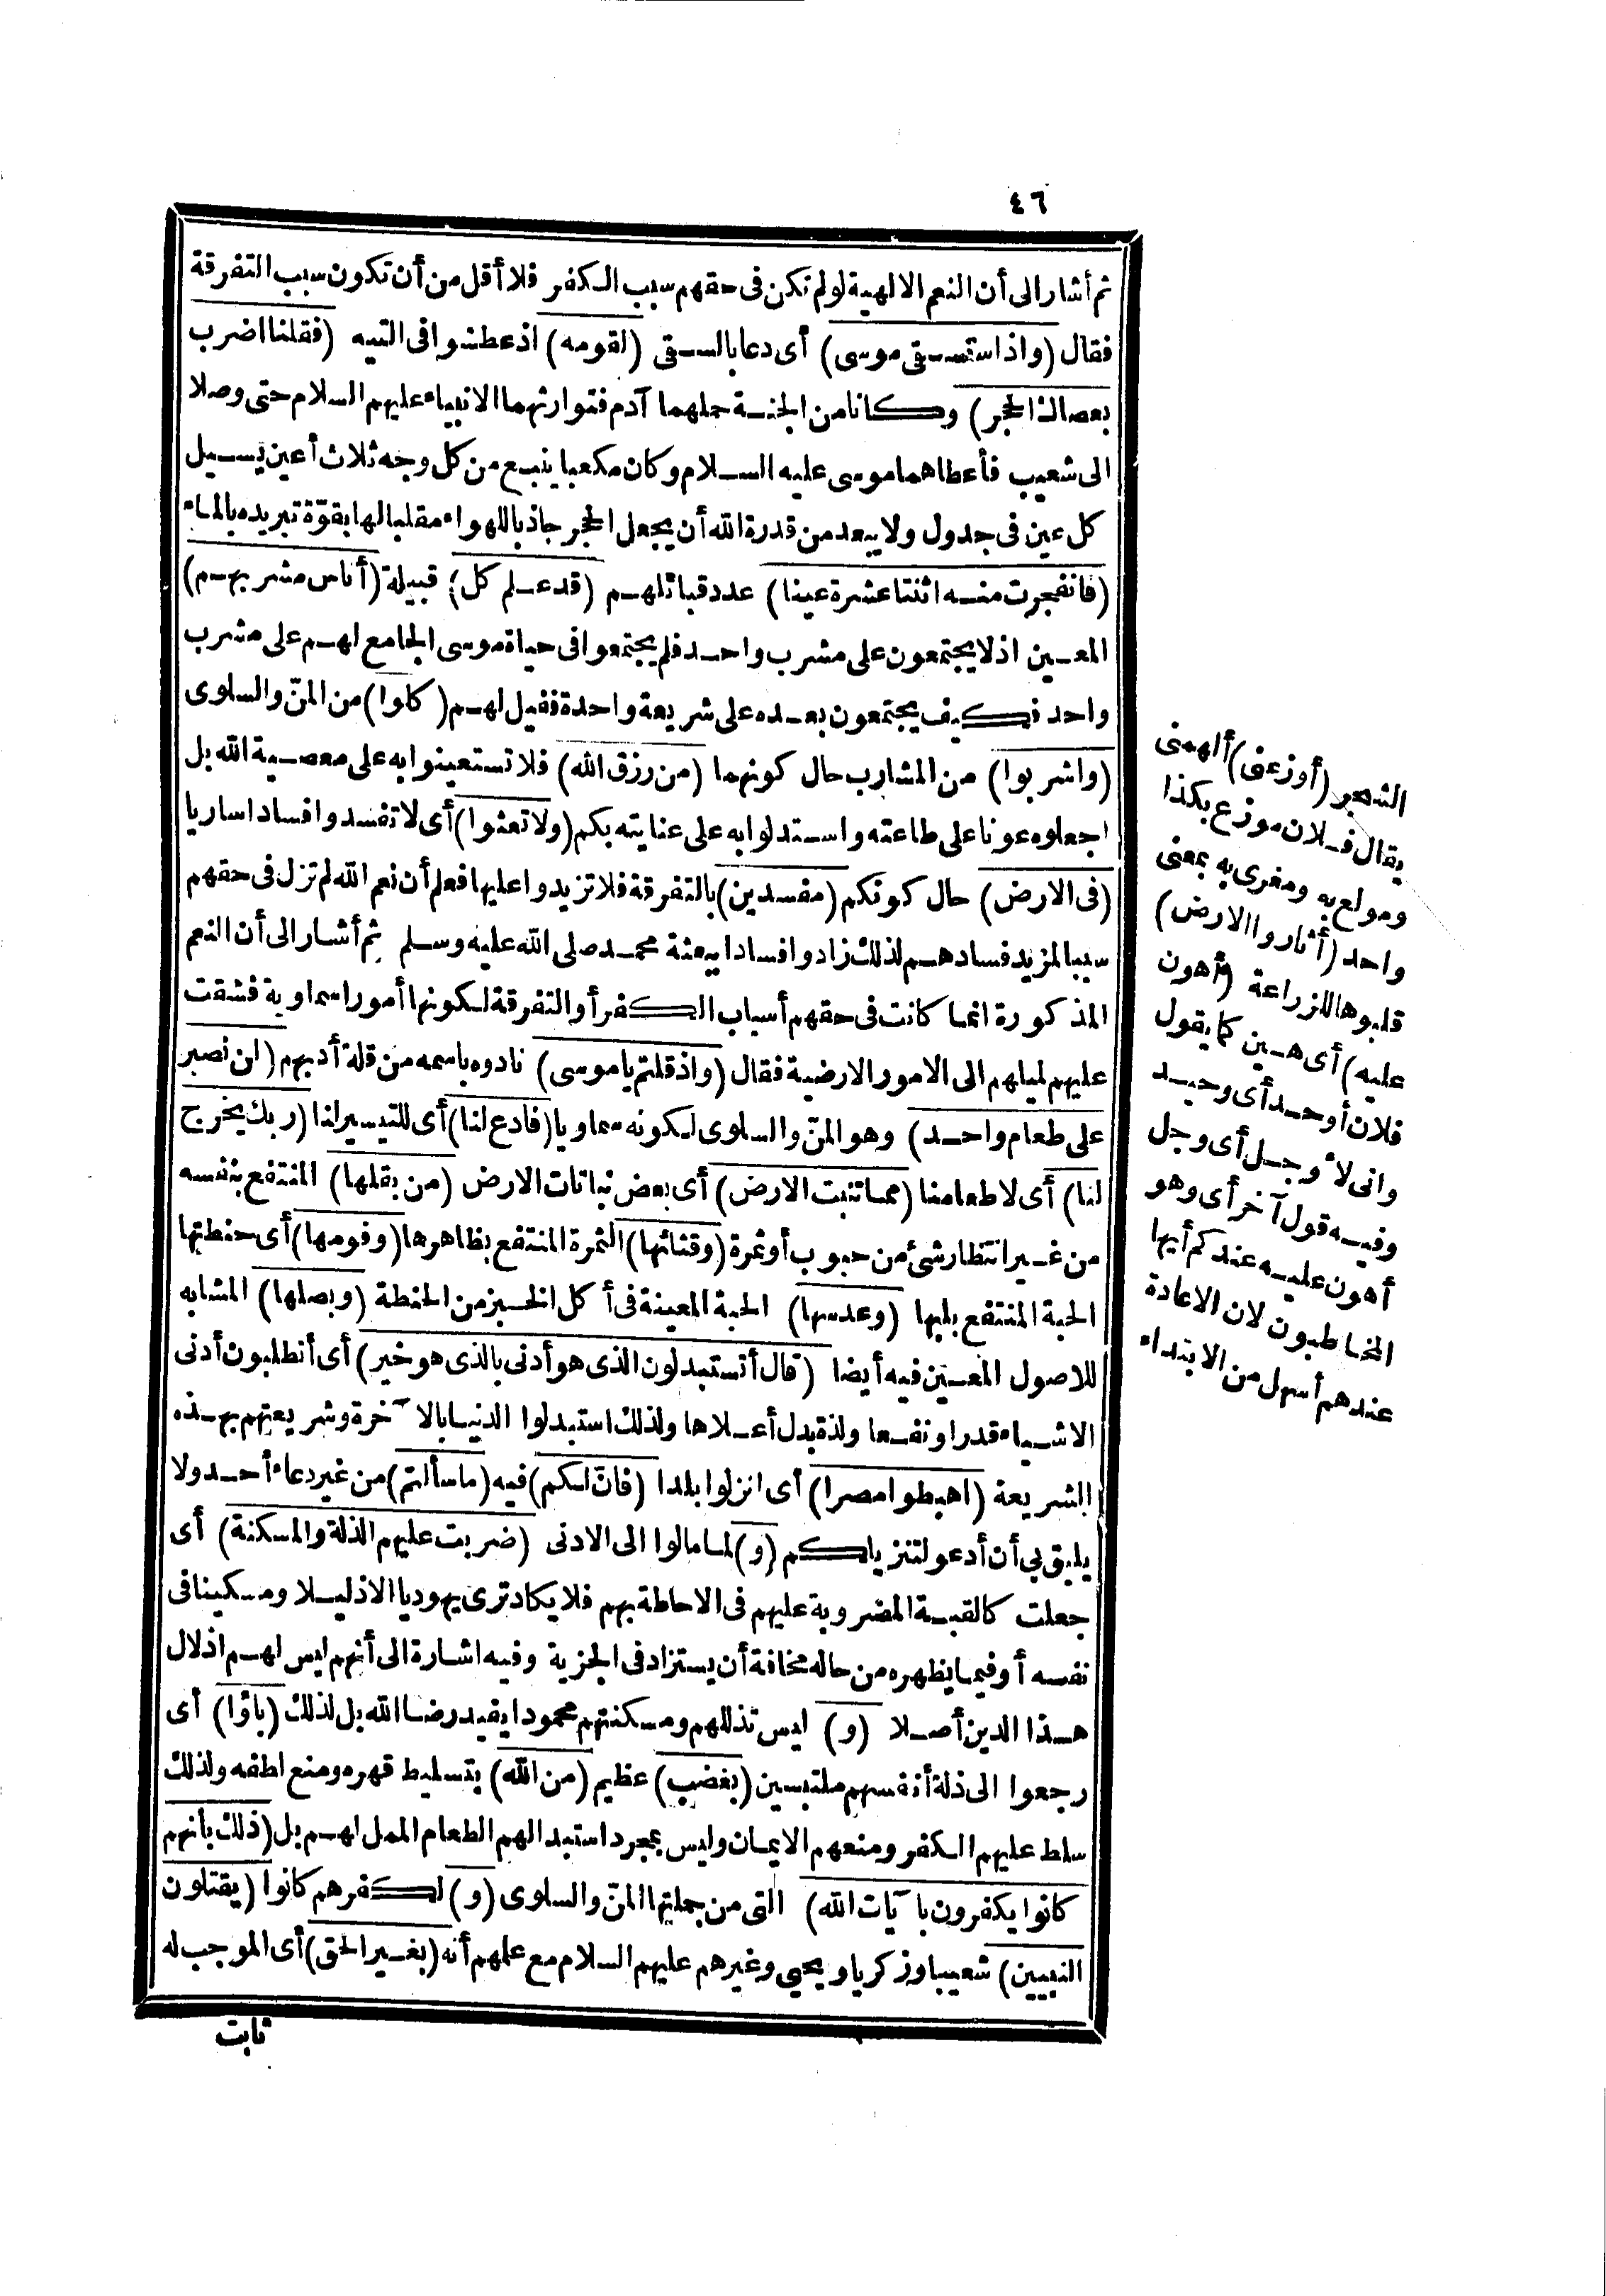 ٤٦
ثم أشار الى أن النعم الالهية لو لم تكن فى حقهم سبب الكفر فلا أقل من أن تكون سبب التفرقة
فقال (واذ استسقى موسى) أى دعا بالسقى (لقومه) اذ عطشوا فى التيه (فقلنا اضرب
بعصاك الحجر) وكانا من الجنة حملهما آدم فتوارثهما الانبياء عليهم السلام حتى وصلا
الى شعيب فأعطاهما موسى عليه السلام وكان مكعبا ينبع من كل وجه ثلاث أعين يسيل
كل عين فى جدول ولا يبعد من قدرة الله أن يجعل الحجر جاذبا للهواء مقلبا لها بقوّة تبريده بالماء
(فانفجرت منه اثنتا عشرة عينا) عدد قبائلهم (قد علم كل) قبيلة (أناس مشربهم)
المعين اذ لا يجتمعون على مشرب واحد فلم يجتمعوا فى حياة موسى الجامع لهم على مشرب
واحد فكيف يجتمعون بعده على شريعة واحدة فقيل لهم (كلوا) من المنّ والسلوى
(واشربوا) من المشارب حال كونهما (من رزق الله) فلا تستعينوا به على معصية الله بل
اجعلوه عونا على طاعته واستدلوا به على عنايته بكم (ولا تعثوا) أى لا تفسدوا افسادا ساريا
(فى الارض) حال كونكم (مفسدين) بالتفرقة فلا تزيدوا عليها فعلم أن نعم الله لم تزل فى حقهم
سببا لمزيد فسادهم لذلك زادوا فسادا ببعثة محمد صلى الله عليه وسلم ثم أشار الى أن النعم
المذكورة انما كانت فى حقهم أسباب الكفر أو التفرقة لكونها أمورا سماوية فشقت
عليهم لميلهم الى الامور الارضية فقال (واذ قلتم يا موسى) نادوه باسمه من قلة أدبهم (لن نصبر
على طعام واحد) وهو المنّ والسلوى لكونه سماويا (فادع لنا) أى للتيسير لنا (ربك يخرج
لنا) أى لاطعامنا (مما تنبت الارض) أى بعض نباتات الارض (من بقلها) المنتفع بنفسه
من غير انتظار شئ من حبوب أو ثمرة (وقثائها) الثمرة المنتفع بظاهرها (وفومها) أى حنطتها
الحبة المنتفع بلبها (وعدسها) الحبة المعينة فى أكل الخبز من الحنطة (وبصلها) المشابه
للاصول المعين فيه أيضا (قال أتستبدلون الذى هو أدنى بالذى هو خير) أى أتطلبون أدنى
الاشياء قدرا ونفعا ولذة بدل أعلاها ولذلك استبدلوا الدنيا بالآخرة وشريعتهم بهذه
الشريعة (اهبطوا مصرا) أى انزلوا بلدا (فانّ لكم) فيه (ما سألتم) من غير دعاء أحد ولا
يليق بى أن أدعو لتنزيلكم (و) لما مالوا الى الادنى (ضربت عليهم الذلة والمسكنة) أى
جعلت كالقبة المضروبة عليهم فى الاحاطة بهم فلا يكاد ترى يهوديا الا ذليلا ومسكينا فى
نفسه أو فيما يظهره من حاله مخافة أن يستزاد فى الجزية وفيه اشارة الى أنهم ليس لهم اذلال
هذا الدين أصلا (و) ليس تذللهم ومسكنتهم محمودا يفيد رضا الله بل لذلك (باؤا) أى
رجعوا الى ذلة أنفسهم ملتبسين (بغضب) عظيم (من الله) بتسليط قهره ومنع لطفه ولذلك
سلط عليهم الكفر ومنعهم الايمان وليس بمجرد استبدالهم الطعام الممل لهم بل (ذلك بأنهم
كانوا يكفرون بآيات الله) التى من جملتها المنّ والسلوى (و) لكفرهم كانوا (يقتلون
النبيين) شعيبا وزكريا ويحيى وغيرهم عليهم السلام مع علمهم أنه (بغير الحق) أى الموجب له
ثابت
الشهر (أوزعنى) ألهمنى
يقال فلان موزع بكذا
ومولع به ومغرى به بمعنى
واحد (أثاروا الارض)
قلبوها للزراعة (أهون
عليه) أى هين كما يقول
فلان أوحد أى وحيد
وانى لأوجل أى وجل
وفيه قول آخر أى وهو
أهون عليه عندكم أيها
المخاطبون لان الاعادة
عندهم أسهل من الابتداء